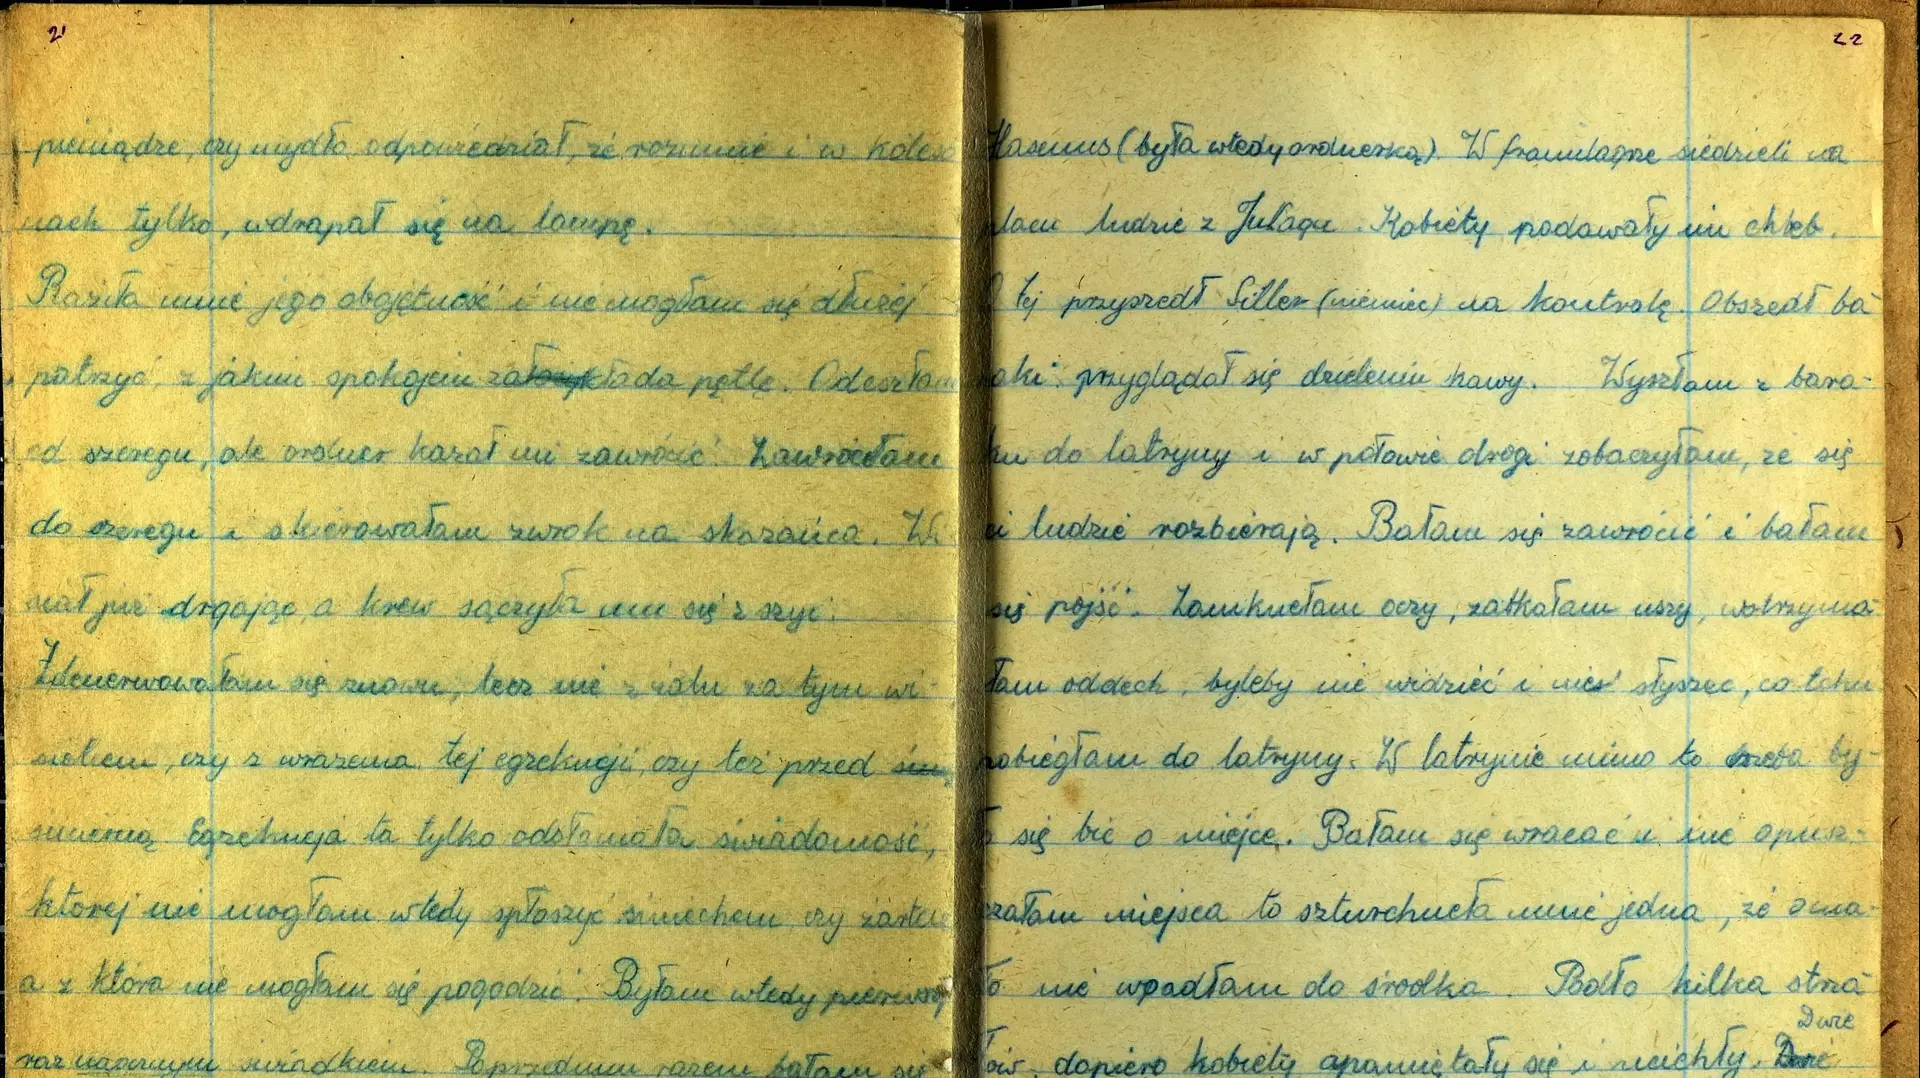 21
pieniądze, czy mydło odpowiedział, że rozumie i w koleso
nach tylko, wdrapał się na lampę.
Raziła mnie jego obojętność i nie mogłam się dłużej
patrzyć, z jakim spokojem zakłada pętlę. Odeszłam
od szeregu, ale ordner kazał mi zawrócić. Zawróciłam
do szeregu i skierowałam zwrok na skazańca. Wi
siał już drgając, a krew sączyła mu się z szyi.
Zdenerwowałam się znowu, lecz nie z żalu za tym wi-
sielcem, czy z wrażenia tej egzekucji, czy też przed
śmiercią Egzekucja ta tylko odsłamała świadomość,
ktorej nie mogłam wtedy spłoszyć śmiechem czy żartem
a z którą nie mogłam się pogodzić. Byłam wtedy pierwszy
raz naocznym świadkiem. Poprzednim razem bałam się
22
Hasenus (była wtedy ordnerką). W frauenlagrze siedzieli na
placu ludzie z Julagu. Kobiety podawały im chleb.
O tej przyszedł Siller (niemiec) na kontrolę. Obszedł ba-
raki przyglądał się dzieleniu kawy. Wyszłam z bara-
ku do latryny i w połowie drogi zobaczyłam, że się
ci ludzie rozbierają. Bałam się zawrócić i bałam
się pójść. Zamknęłam oczy, zatkałam uszy, wstrzyma-
łam oddech, byleby nie widzieć i nie słyszeć, co tchu
pobiegłam do latryny. W latrynie mimo to trzeba by-
ło się bić o miejsce. Bałam się wracać i nie opusz-
czałam miejsca to szturchnęła mnie jedna, że oma-
ło nie wpadłam do środka. Padło kilka strza
łów, dopiero kobiety opamiętały się i ucichły. Dwie